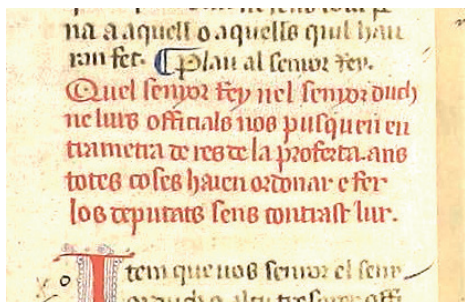 na a aquell o aquells quil hau
ran fet. ¶ Plau al senyor Rey.
Quel senyor Rey nel senyor duch
ne lurs officials nos pusquen en
trametra de res de la proferta. ans
totes coses haien ordonar e fer
los deputats sens contrast lur.
Item que vos senyor el seny